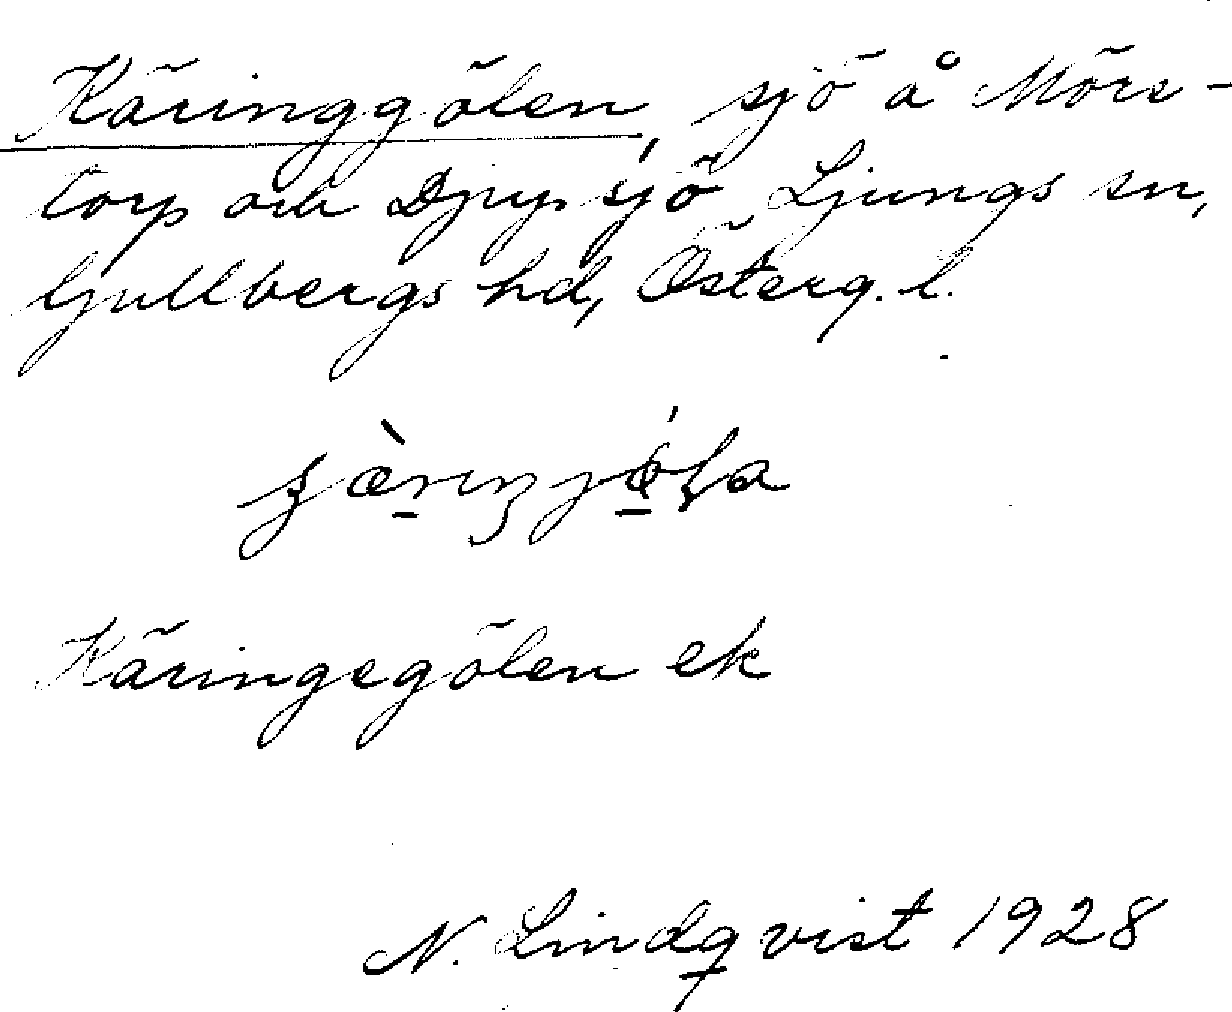 Käringgölen, sjö å Mörs-
torp och Djupsjö, Ljungs sn,
Gullbergs hd, Österg. l.
Käringegölen ek
N. Lindqvist 1928